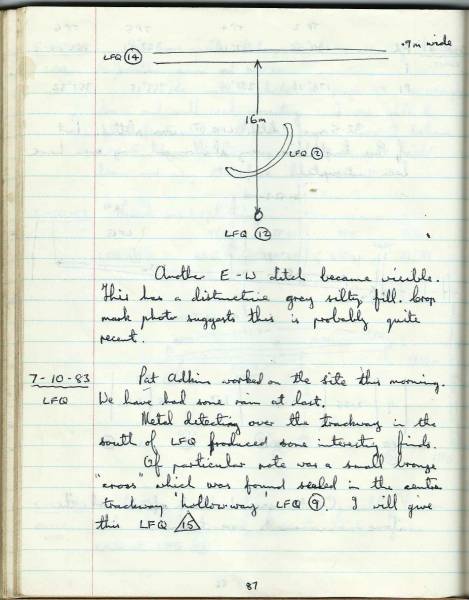 .9m wide
LFQ 14
16m
LFQ 2
LFQ 12
Another E-W ditch became visible.
This has a distinctive grey silty fill. Crop
mark photo suggests this is probably quite
recent.
7-10-83
LFQ
Pat Adkins worked on the site this morning.
We have had some rain at last.
Metal detecting over the trackway in the
south of LFQ produced some interesting finds.
Of particular note was a small bronze
"cross" which was found sealed in the centre
trackway 'hollow-way' LFQ 9. I will give
this LFQ 15
87